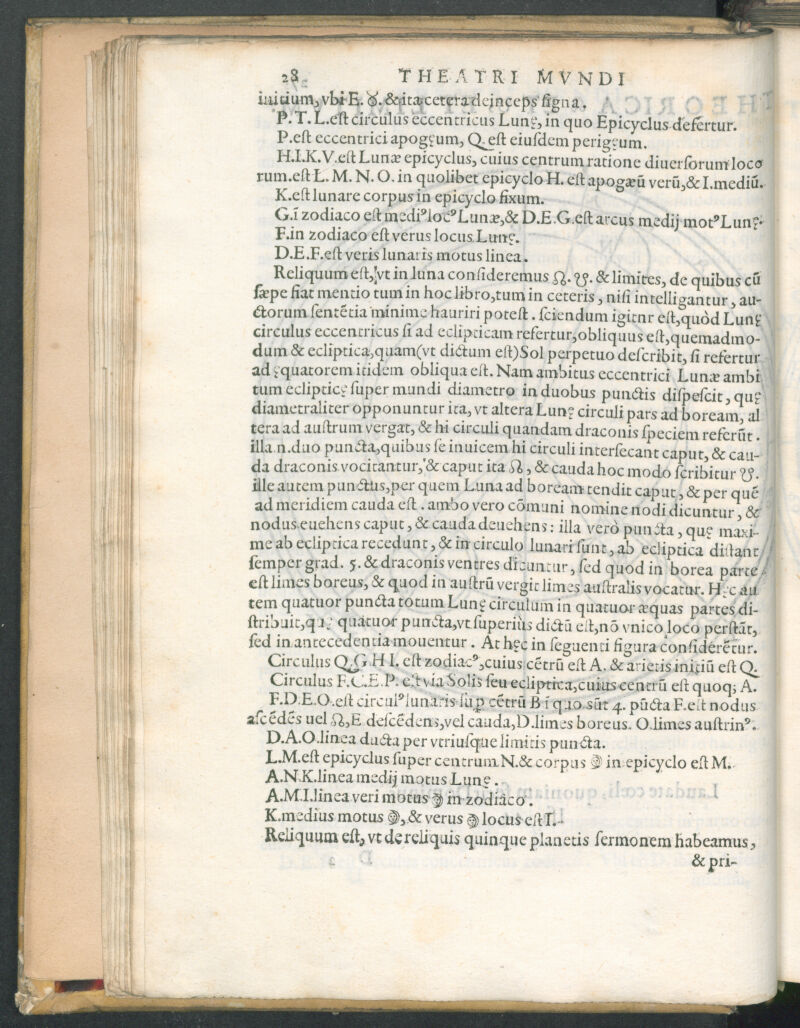 28 THEATRI MVNDI
initium, vbi E. ♉. & ita cetera deinceps ſigna.
P. T. L. eſt circulus eccentricus Lunę, in quo Epicyclus defertur.
P. eſt eccentrici apogęum, Q. eſt eiuſdem perigęum.
H.I.K.V. eſt Lunæ epicyclus, cuius centrum ratione diuerſorum loco
rum. eſt L. M. N. O. in quolibet epicyclo H. eſt apogæū verū, & I. mediū.
K. eſt lunare corpus in epicyclo fixum.
G. ī zodiaco eſt medi⁹ loc⁹ Lunæ, & D.E.G. eſt arcus medij mot⁹ Lunę.
F. in zodiaco eſt verus locus Lunę.
D.E.F. eſt veris lunaris motus linea.
Reliquum eſt, vt in luna conſideremus ☊. ☋. & limites, de quibus cū
ſæpe fiat mentio tum in hoc libro, tum in ceteris, niſi intelligantur, au-
ctorum ſentētia minime hauriri poteſt. ſciendum igitnr eſt, quòd Lunę
circulus eccentricus ſi ad eclipticam refertur, obliquus eſt, quemadmo-
dum & ecliptica, quam (vt dictum eſt) Sol perpetuo deſcribit, ſi refertur
ad ęquatorem itidem obliqua eſt. Nam ambitus eccentrici Lunæ ambi
tum eclipticę ſuper mundi diametro in duobus punctis diſpeſcit, quę
diametraliter opponuntur ita, vt altera Lunę circuli pars ad boream, al
tera ad auſtrum vergat, & hi circuli quandam draconis ſpeciem referūt.
illa.n. duo puncta, quibus ſe inuicem hi circuli interſecant caput, & cau-
da draconis vocitantur, & caput ita ☊, & cauda hoc modo ſcribitur ☋.
ille autem punctus, per quem Luna ad boream tendit caput, & per quē
ad meridiem cauda eſt. ambo vero cōmuni nomine nodi dicuntur, &
nodus euehens caput, & cauda deuehens: illa verò puncta, quę maxi-
me ab ecliptica recedunt, & in circulo lunari ſunt, ab ecliptica diſtant
ſemper grad. 5. & draconis ventres dicuntur, ſed quod in borea parte
eſt limes boreus, & quod in auſtrū vergit limes auſtralis vocatur. Hęc au
tem quatuor puncta totum Lunę circulum in quatuor æquas partes di-
ſtribuit, quę quatuor puncta, vt ſuperiùs dictū eſt, nō vnico loco perſtāt,
ſed in antecedentia mouentur. At hęc in ſeguenti figura conſiderētur.
Circulus Q.G.H I. eſt zodiac⁹, cuius cētrū eſt A. & arietis initiū eſt Q.
Circulus F.C.E.P. eſt via Solis ſeu ecliptica, cuius centrū eſt quoq; A.
F.D.E.O. eſt circul⁹ lunaris ſup cētrū B ī quo sūt 4. pūcta F. eſt nodus
aſcēdēs uel ☊, E deſcēdens, vel cauda, D. limes boreus. O. limes auſtrin⁹.
D.A.O. linea ducta per vtriuſque limitis puncta.
L.M. eſt epicyclus ſuper centrum N. & corpus ☽ in epicyclo eſt M.
A.N.K. linea medij motus Lunę.
A.M.I. linea veri motus ☽ in zodiaco.
K. medius motus ☽, & verus ☽ locus eſt I.
Reliquum eſt, vt de reliquis quinque planetis ſermonem habeamus,
& pri-